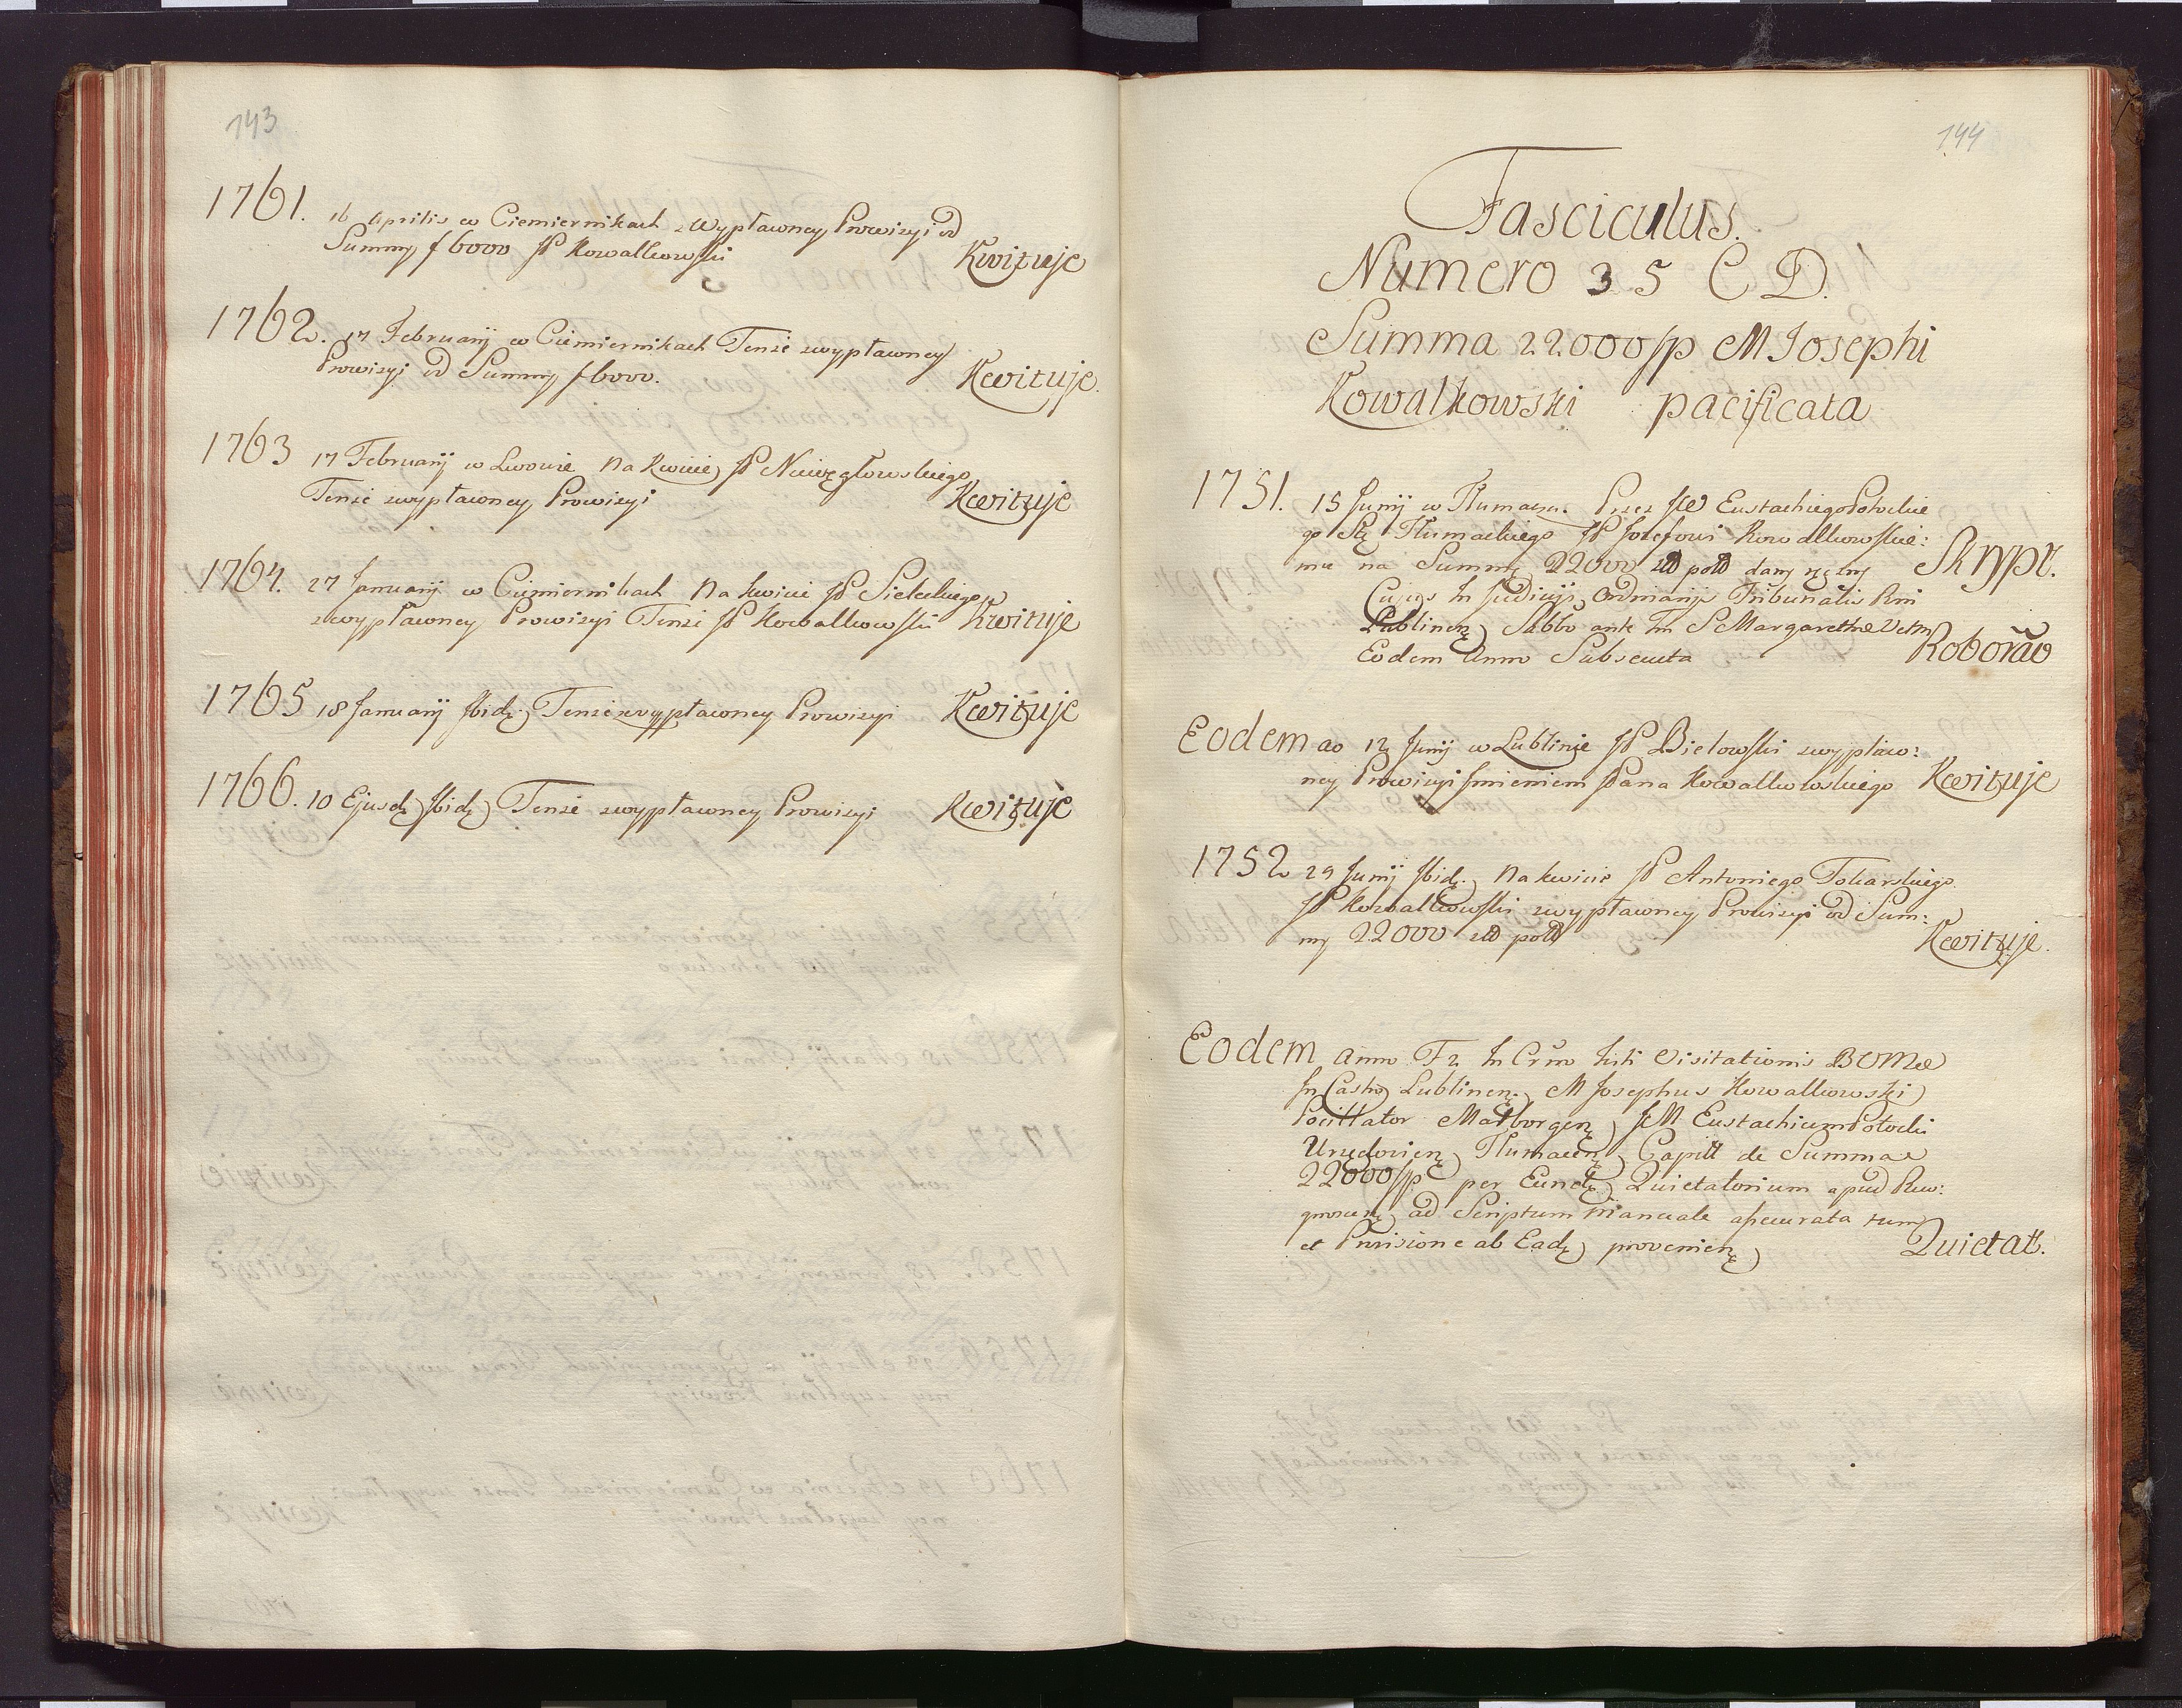 143
1761. 16 Aprilis w Ciemiernikach z Wypłaconey Prowizyi od
Summy f 6000 JP Kowalkowski Kwituje
1762. 17 Februarij w Ciemiernikach Tenże z wypłaconey
Prowizyi od Summy f 6000. Kwituje.
1763 17 Februarij w Lwowie Na Kwicie JP Niewęgłowskiego
Tenże z wypłaconey Prowizyi Kwituje
1764. 27 Januarij w Ciemiernikach Na kwicie JP Sieleckiego
z wypłaconey Prowizyi Tenże JP Kowalkowski Kwituje
1765 18 Januarij Ibidę. Tenże z wypłaconey Prowizyi Kwituje
1766. 10 Ejusdę Ibidę Tenże z wypłaconey Prowizyi Kwituje
144
Fasciculus.
Numero 35 C D.
Summa 22000 fp M Josephi
Kowalkowski pacificata
1751. 15 Junij w Tłumaczu. Przez JW Eustachiego Potockie
go Stę Tłumackiego JP Jozefowi Kowalkowskie:
mu na Summę 22000 zł pol dany ręczny Skrypt.
Cujus In Judicijs Ordinarijs Tribunalis Rni
Lublinenę Sabbo ante Fm S Margarethae
Eodem Anno Subsecuta Roborao
Eodem ao 12 Junij w Lublinie JP Bielowski z wypłaco:
ney Prowizyi Imieniem Pana Kowalkowskiego Kwituje
1752 29 Junij Ibidę. Na kwicie JP Antoniego Tokarskiego
JP Kowalkowski z wypłaconey Prowizyi od Sum:
my 22000 zł pol Kwituje.
Eodem Anno F2 In Crno festi Visitationis BVMae
In Castro Lublinenę. M Josephus Kowalkowski
Pocillator Malborgenę JM Eustachium Potocki
Urzędovienę Tłumacenę Capitt de Summa
22000 fp per Eundę Quietatorium apud Reco:
gnoscenę ad Scriptum Manuale assecurata tum
et Provisione ab Eadę provenienę Quietat.